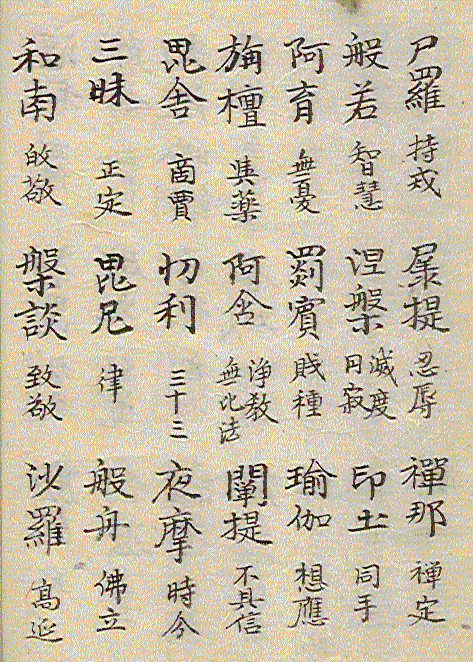 尸羅 持戒 羼提 忍辱 禪那 禅定
般若 智慧 涅槃 滅度 円寂 印土 同手
阿育 無憂 罽賓 賎種 瑜伽 想應
旃檀 與藥 阿含 浄教 無比法 闡提 不具信
毘舎 商賈 忉利 三十三 夜摩 時分
三昧 正定 毘尼 律 般舟 佛立
和南 敬 槃談 致敬 沙羅 高遠